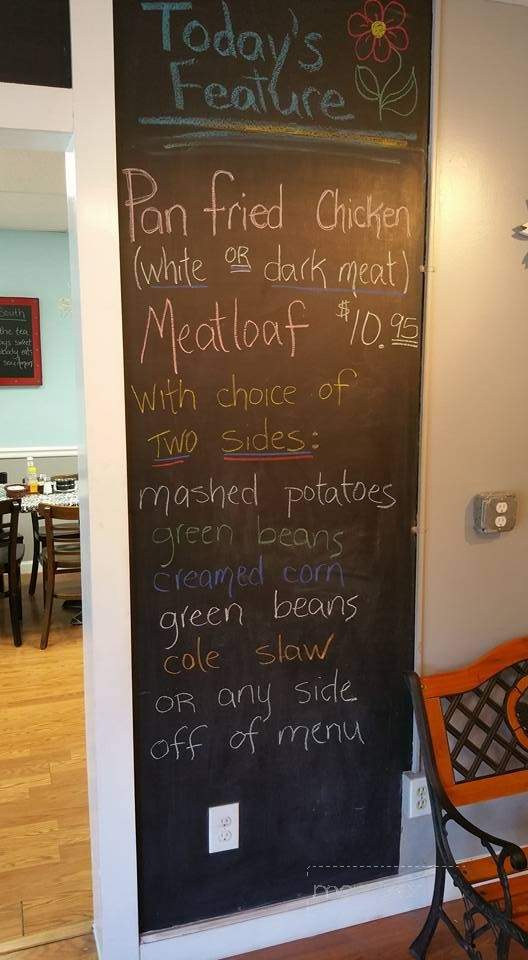 Today's
Feature
Pan fried Chicken
(white OR dark meat)
Meatloaf $10.95
with choice of
TWO sides:
mashed potatoes
green beans
creamed corn
green beans
cole slaw
OR any side
off of menu
South
the tea